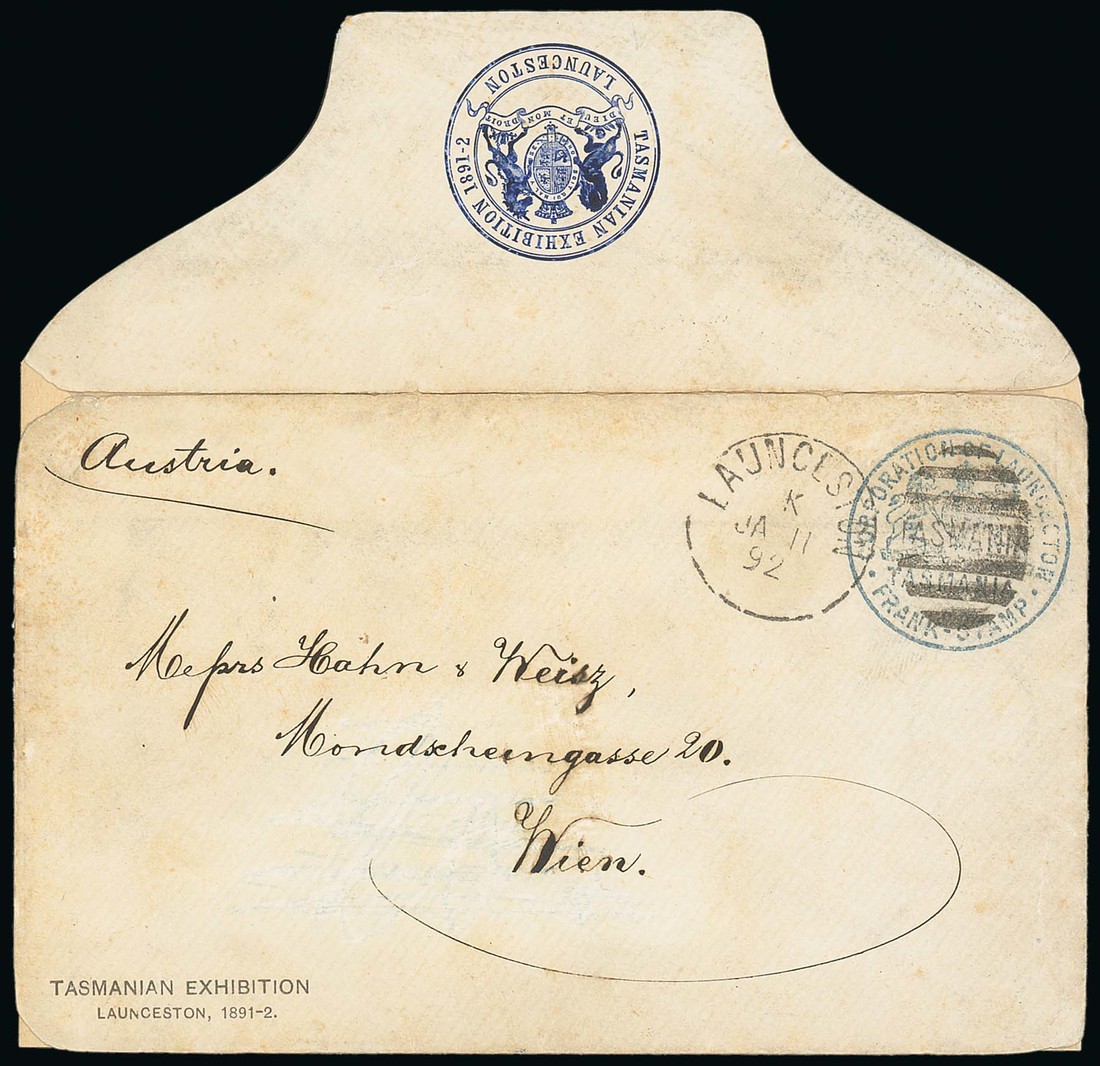 TASMANIAN EXHIBITION 1891-2
LAUNCESTON
DIEU ET MON DROIT
Austria.
LAUNCESTON
K
JA 11
92
CORPORATION OF LAUNCESTON
TASMANIA
TASMANIA
· FRANK-STAMP ·
Messrs Hahn & Weisz,
Mondscheingasse 20.
Wien.
TASMANIAN EXHIBITION
LAUNCESTON, 1891-2.